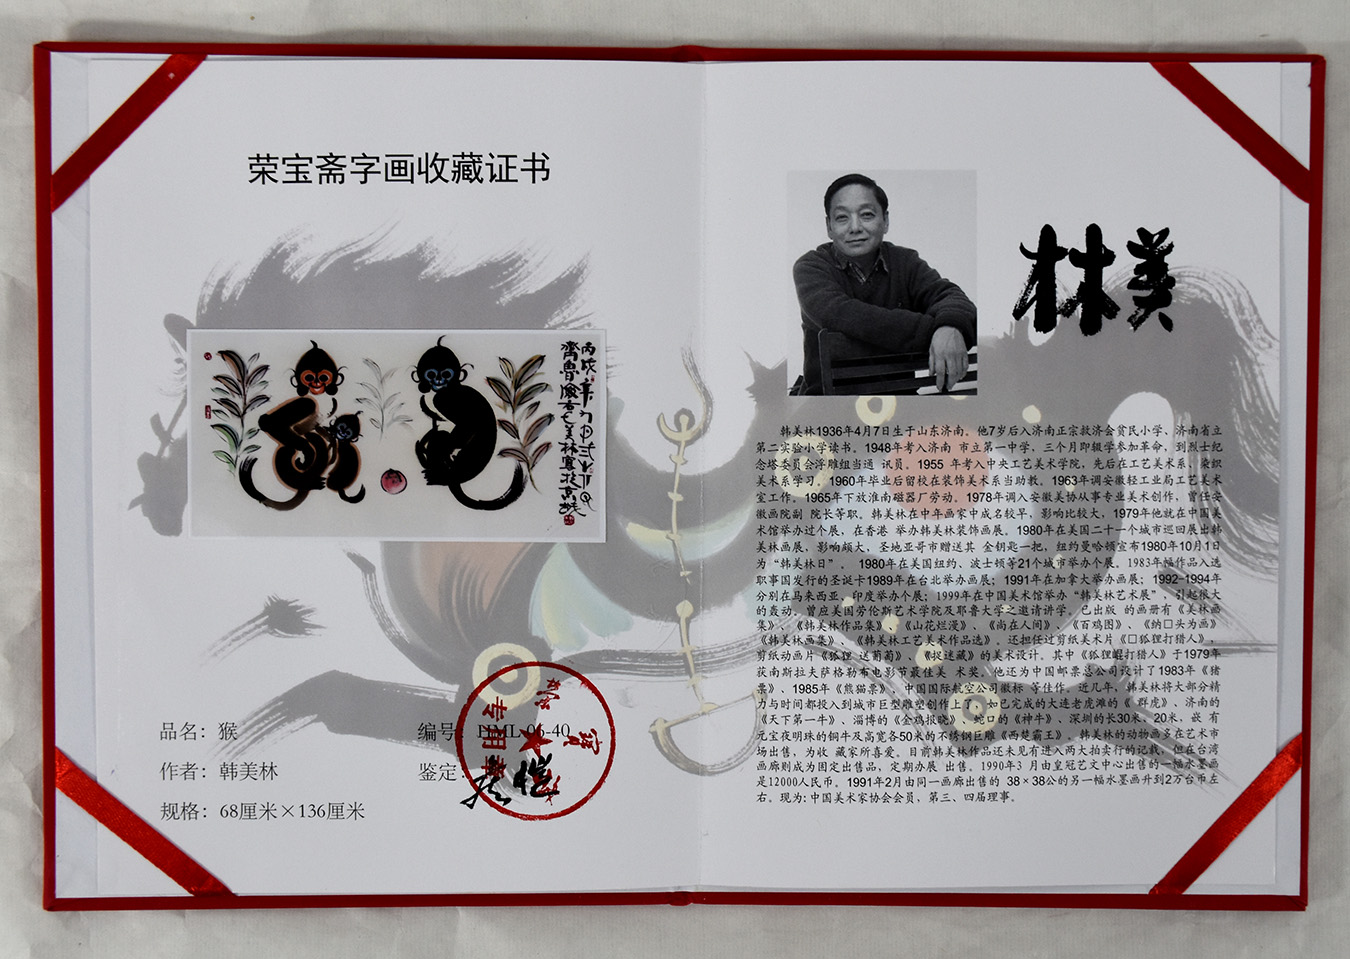 荣宝斋字画收藏证书
丙戌年
齐鲁
美林写于京华
品名：猴
作者：韩美林
规格：68厘米×136厘米
编号：HML-06-40
鉴定：
专用章
美林
韩美林1936年4月7日生于山东济南，他7岁后入济南正宗救济会贫民小学、济南省立
第二实验小学读书。1948年考入济南 市立第一中学，三个月即辍学参加革命，到烈士纪
念塔委员会浮雕组当通 讯员。1955 年考入中央工艺美术学院，先后在工艺美术系、染织
美术系学习。1960年毕业后留校在装饰美术系当助教。1963年调安徽轻工业局工艺美术
室工作。1965年下放淮南磁器厂劳动。1978年调入安徽美协从事专业美术创作，曾任安
徽画院副 院长等职。韩美林在中年画家中成名较早，影响比较大，1979年他就在中国美
术馆举办过个展，在香港 举办韩美林装饰画展。1980年在美国二十一个城市巡回展出韩
美林画展，影响颇大，圣地亚哥市赠送其 金钥匙一把，纽约曼哈顿宣布1980年10月1日
为“韩美林日”。 1980年在美国纽约、波士顿等21个城市举办个展。1983年幅作品入选
职事国发行的圣诞卡1989年在台北举办画展；1991年在加拿大举办画展；1992-1994年
分别在马来西亚、印度举办个展；1999年在中国美术馆举办“韩美林艺术展”，引起很大
的轰动。曾应美国劳伦斯艺术学院及耶鲁大学之邀请讲学。已出版 的画册有《美林画
集》、《韩美林作品集》、《山花烂漫》、《尚在人间》、《百鸡图》、《纳□头为画》
《韩美林画集》、《韩美林工艺美术作品选》。还担任过剪纸美术片《□狐狸打猎人》，
剪纸动画片《狐狸 送葡萄》、《捉迷藏》的美术设计。其中《狐狸崐打猎人》于1979年
获南斯拉夫萨格勒布电影节最佳美 术奖。他还为中国邮票总公司设计了1983年《猪
票》、1985年《熊猫票》，中国国际航空公司徽标 等佳作。近几年，韩美林将大部分精
力与时间都投入到城市巨型雕塑创作上了，如已完成的大连老虎滩的《 群虎》、济南的
《天下第一牛》、淄博的《金鸡报晓》、蛇口的《神牛》、深圳的长30米、20米，嵌 有
元宝夜明珠的铜牛及高宽各50米的不锈钢巨雕《西楚霸王》。韩美林的动物画多在艺术市
场出售，为收 藏家所喜爱。目前韩美林作品还未见有进入两大拍卖行的记载，但在台湾
画廊则成为固定出售品，定期办展 出售。1990年3 月由皇冠艺文中心出售的一幅水墨画
是12000人民币。1991年2月由同一画廊出售的 38×38公的另一幅水墨画升到2万台币左
右。现为:中国美术家协会会员，第三、四届理事。